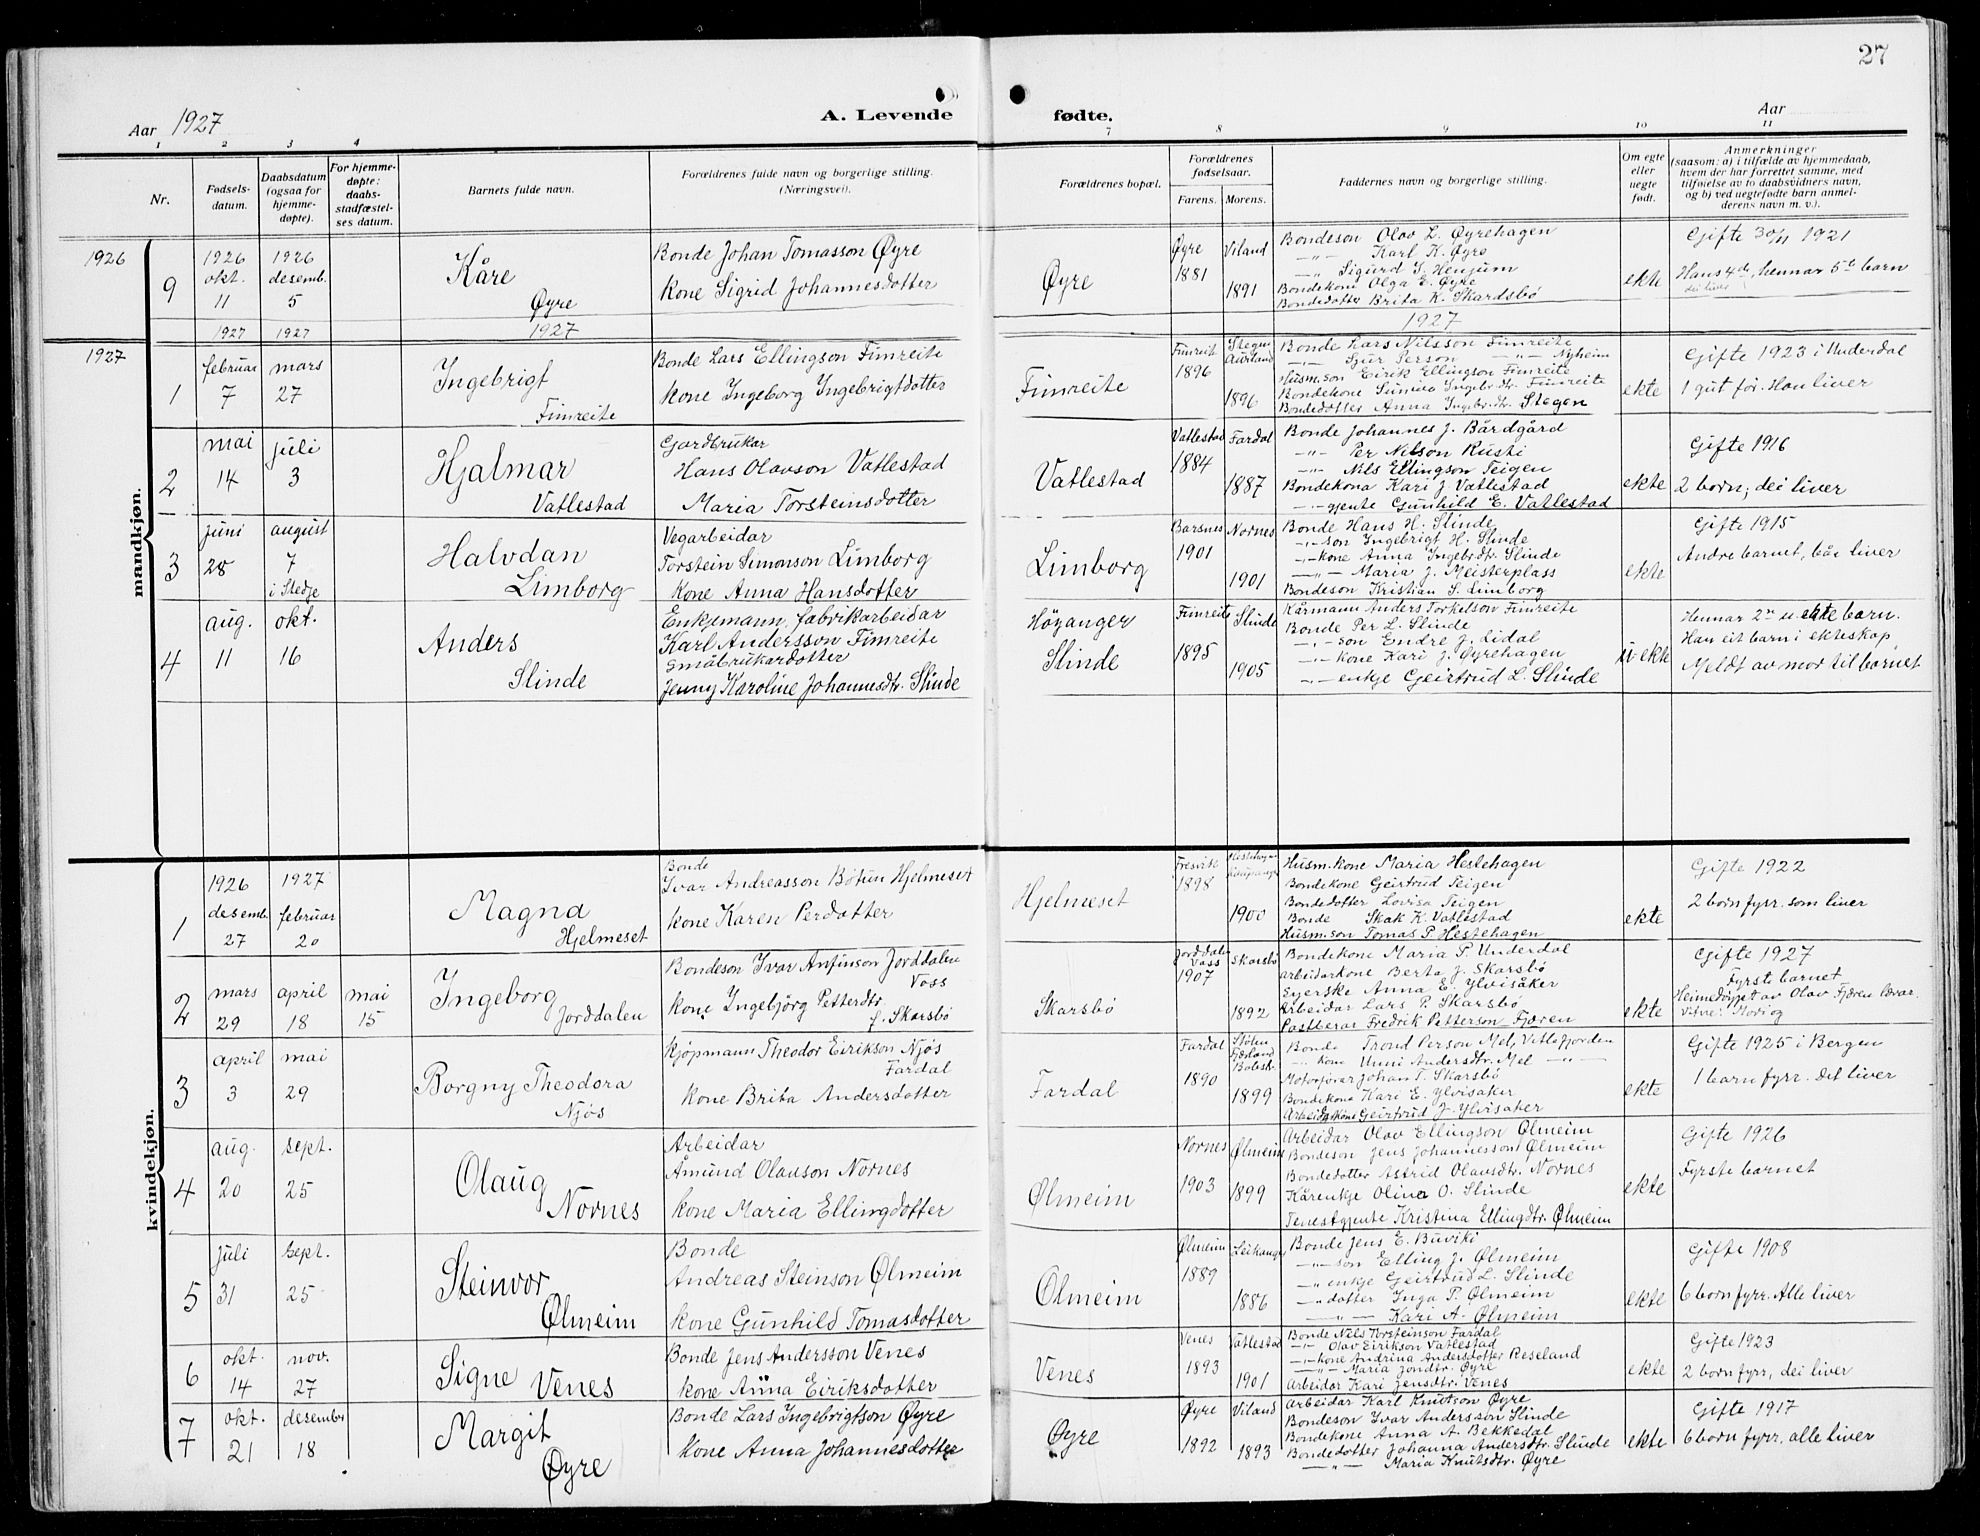 27
Aar 1927
A. Levende fødte.
Aar
1 2 3 4 7 8 9 10 11
Nr.
Fødsels-
datum.
Daabsdatum
(ogsaa for
hjemme-
døpte).
For hjemme-
døpte:
daabs-
stadfæstel-
ses datum.
Barnets fulde navn.
Forældrenes fulde navn og borgerlige stilling.
(Næringsvei).
Forældrenes bopæl.
Forældrenes
fødselsaar.
Farens. Morens.
Faddernes navn og borgerlige stilling.
Om egte
eller
uegte
født.
Anmerkninger
(saasom: a) i tilfælde av hjemmedaab,
hvem der har forrettet samme, med
tilføielse av to daabsvidners navn,
og b) ved uegtefødte barn anmel-
derens navn m. v.).
mandkjøn.
1926
9
1926
okt.
11
1926
desemb.
5
Kåre
Øyre
Bonde Johan Tomasson Øyre
Kone Sigrid Johannesdotter
Øyre
Øyre
1881
Viland
1891
Bondeson Olav L. Øyrehagen
-"- Karl K. Øyre
-"- Sigurd S. Henjum
Bondekone Olga E. Øyre
Bondedotter Brita K. Skardsbø
ekte
Gifte 30/11 1921
Hans 4de, hennar 5te barn
dei liver
1927 1927 1927 1927
1927
1
februar
7
mars
27
Ingebrigt
Fimreite
Bonde Lars Ellingson Fimreite
Kone Ingeborg Ingebrigtdotter
Fimreite
Fimreite
1896
Stegen
Aurland
1896
Bonde Lars Nilsson Fimreite
-"- Sjur Person -"- Nyheim
Husm.son Eirik Ellingson Fimreite
Bondekone Sunniva Ingebr.dtr. Fimreite
Bondedotter Anna Ingebr.dtr. Stegen
ekte
Gifte 1923 i Underdal
1 gut før. Han liver
2
mai
14
juli
3
Hjalmar
Vatlestad
Gardbrukar
Hans Olavson Vatlestad
Maria Torsteinsdotter
Vatlestad
Vatlestad
1884
Fardal
1887
Bonde Johannes J. Bårdgård
-"- Per Nilson Rusti
-"- Nils Ellingson Teigen
Bondekona Kari J. Vatlestad
-"- gjente Gunhild E. Vatlestad
ekte
Gifte 1916
2 born; dei liver
3
juni
28
august
7
i Stedje
Halvdan
Limborg
Vegarbeidar
Torstein Simonson Limborg
Kone Anna Hansdotter
Limborg
Barsnes
1901
Nornes
1901
Bonde Hans H. Slinde
-"- son Ingebrigt H. Slinde
-"- kone Anna Ingebr.dtr. Slinde
-"-"- Maria J. Meisterplass
Bondeson Kristian S. Limborg
ekte
Gifte 1915
Andre barnet, båe liver
4
aug.
11
okt.
16
Anders
Slinde
Enkjemann, fabrikarbeidar
Karl Andersson Fimreite
Småbrukardotter
Jenny Karoline Johannesdtr. Slinde
Høyanger
Slinde
Fimreite
1895
Slinde
1905
Kårmann Anders Torkelson Fimreite
Bonde Per L. Slinde
-"- son Endre J. Eidal
-"- kone Kari J. Øyrehagen
-"- enkje Geirtrud L. Slinde
u ekte
Hennar 2re u. ekte barn.
Han eit barn i ekteskap
Meldt av mor til barnet
kvindekjøn.
1
1926
desemb.
27
1927
februar
20
Magna
Hjelmeset
Bonde
Ivar Andreasson Bøtun Hjelmeset
Kone Karen Perdotter
Hjelmeset
Fresvik
1898
1900
Husm.kone Maria Hestehagen
Bondekone Geirtrud Teigen
Bondedotter Lovisa Teigen
Bonde Skak K. Vatlestad
Husm.son Tomas P. Hestehagen
ekte
Gifte 1922
2 born fyrr. som liver
2
mars
29
april
18
mai
15
Ingeborg
Jorddalen
Bondeson Ivar Anfinson Jorddalen
Voss
Kone Ingebjörg Petterdtr.
f. Skarsbö
Skarsbö
Jorddalen
Voss
1907
Skarsbö
1892
Bondekone Maria P. Underdal
Arbeidarkone Berta J. Skarsbö
Eyerske Anna E. Ylvisåker
Arbeidar Lars P. Skarsbö
Postberar Fredrik Petterson Fjæren
ekte
Gifte 1927
Fyrste barnet
Heimedöypt av Olav Fjæren
3
april
3
mai
29
Borgny Theodora
Njøs
Kjøpmann Theodor Eirikson Njøs
Fardal
Kone Brita Andersdotter
Fardal
Fardal
1890
Fjærland
1899
Bonde Trond Person Mel, Vetlefjorden
-"- kone Unni Andersdtr. Mel -"-
Motorførar Johan T. Skarsbö
Bondekona Kari E. Ylvisaker
Arbeidarkone Geirtrud J. Ylvisaker
ekte
Gifte 1925 i Bergen
1 barn fyrr. det liver
4
aug.
20
sept.
25
Olaug
Nornes
Arbeidar
Åmund Olavson Nornes
Kone Maria Ellingdotter
Ølmeim
Nornes
1903
Ølmeim
1899
Arbeidar Olav Ellingson Ølmeim
Bondeson Jens Johannesson Ølmeim
Bondedotter Astrid Olavsdtr. Nornes
Kårenkje Olina O. Slinde
Tenestgjente Kristina Ellingdtr. Ølmeim
ekte
Gifte 1926
Fyrste barnet
5
juli
31
sept.
25
Steinvor
Ølmeim
Bonde
Andreas Steinson Ølmeim
Kone Gunhild Tomasdotter
Olmeim
Ølmeim
1889
Leikanger
1886
Bonde Jens E. Buviki
-"- son Elling J. Ølmeim
-"- enkje Geirtrud L. Slinde
-"- dotter Inga P. Ølmeim
-"- Kari A. Ølmeim
ekte
Gifte 1908
6 born fyrr. Alle liver
6
okt.
14
nov.
27
Signe Venes
Bonde Jens Andersson Venes
Kone Anna Eiriksdotter
Venes
Venes
1893
Vatlestad
1901
Bonde Nils Torsteinson Fardal
-"- Olav Eirikson Vatlestad
-"- kone Andrina Andersdotter Reseland
-"-"- Maria Jondtr. Øyre
Arbeidar Kari Jensdtr. Venes
ekte
Gifte 1923
2 born fyrr, dei liver
7
okt.
21
desember
18
Margit
Øyre
Bonde Lars Ingebrigtson Øyre
Kone Anna Johannesdotter
Øyre
Øyre
1892
Viland
1893
Arbeidar Karl Knutson Øyre
Bondeson Ivar Andersson Slinde
Bondekone Anna A. Bekkedal
Bondedotter Johanna Andersdtr. Slinde
-"- Maria Knutsdtr. Øyre
ekte
Gifte 1917
6 born fyrr, alle liver